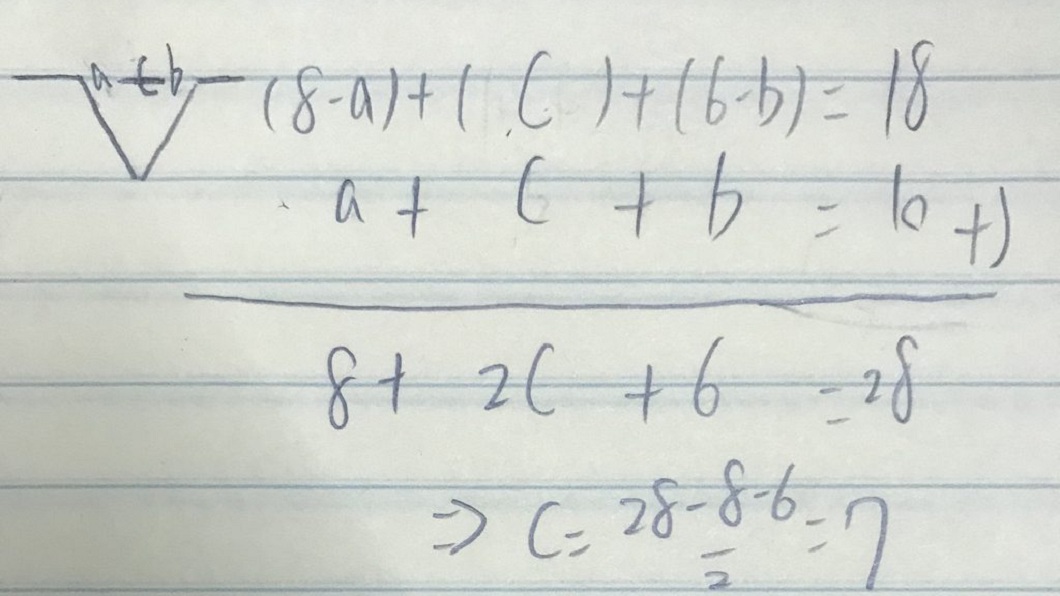 a c b (8-a)+( C )+(6-b)=18
a + C + b = 10 +)
8+ 2C + 6 =28
⇒ C= 28-8-6 / 2 =7